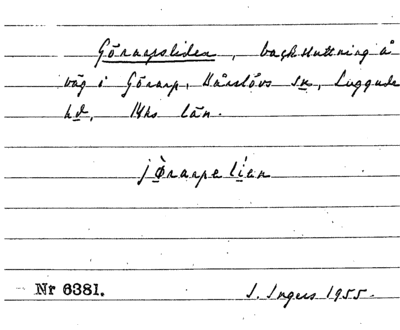 Görarpsliden, backsluttning å
väg i Görarp, Hårslövs sn, Luggude
hd, Mhs län.
jø̀rarpslíən
Nr 6381. I. Ingers 1955.